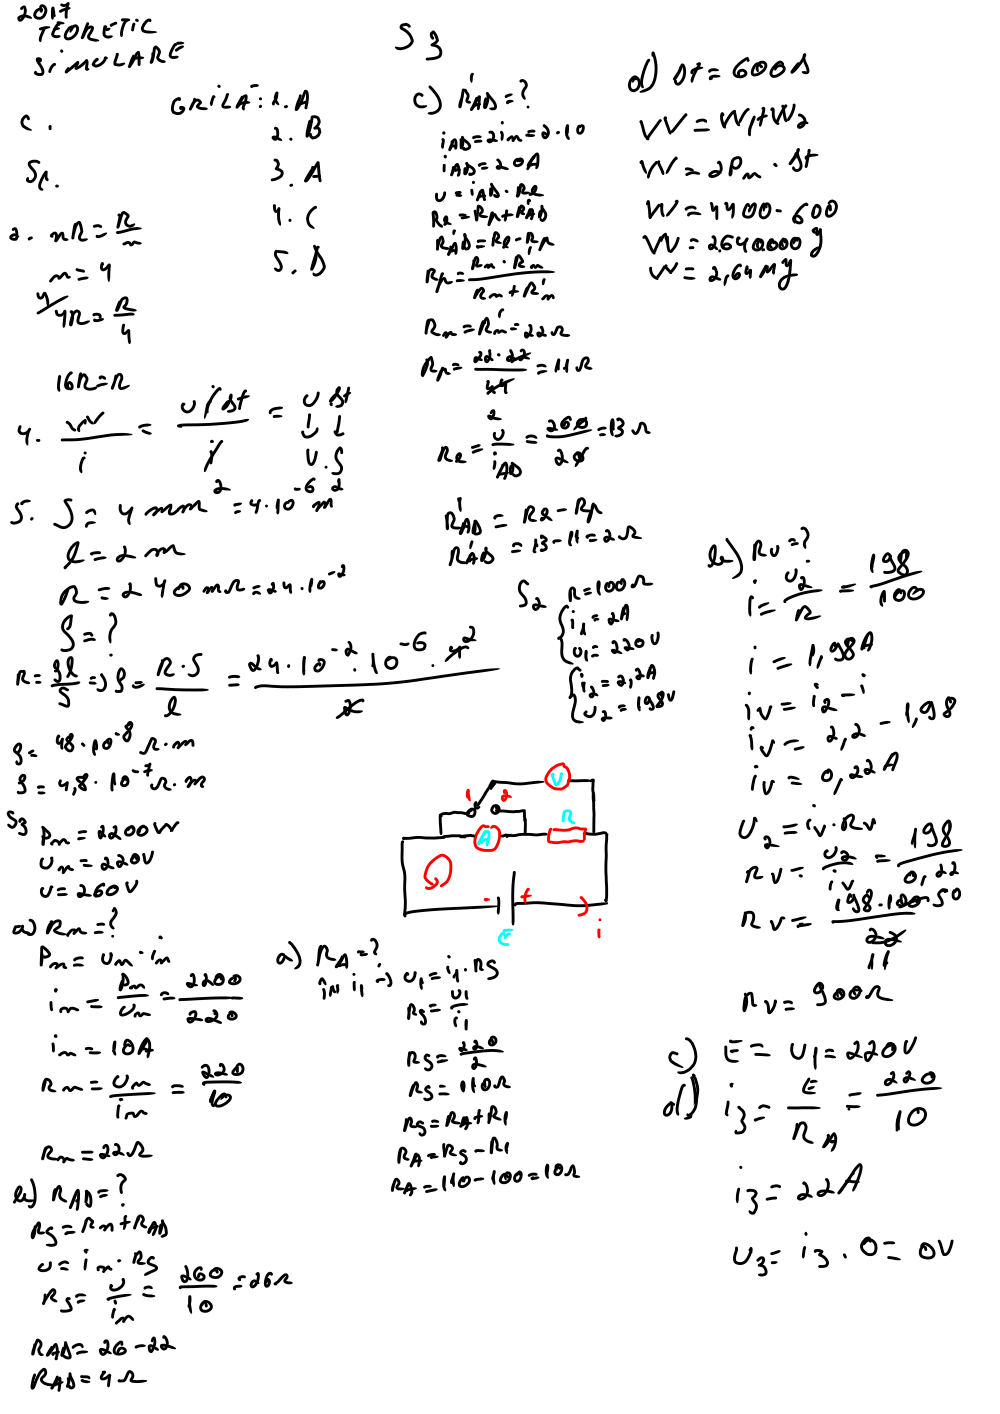 2017
TEORETIC
SIMULARE
C.
S1.
GRILĂ: 1. A
2. B
3. A
4. C
5. D
2. nR = R/n
n = 4
4R = R/4
16R = R
4. W/i = u i Δt / i = u Δt
V.S
5. S = 4 mm² = 4·10⁻⁶ m²
l = 2 m
R = 240 mΩ = 24·10⁻²
ρ = ?
R = ρl/S => ρ = R·S/l = 24·10⁻²·10⁻⁶·4²/2
ρ = 48·10⁻⁸ Ω·m
ρ = 4,8·10⁻⁷ Ω·m
S3
Pn = 2200W
Un = 220V
U = 260V
a) Rn = ?
Pn = Un·in
in = Pn/Un = 2200/220
in = 10A
Rn = Un/in = 220/10
Rn = 22Ω
b) RAD = ?
RS = Rn + RAD
U = in·RS
RS = U/in = 260/10 = 26Ω
RAD = 26 - 22
RAD = 4Ω
S3
c) R'AD = ?
iAD = 2in = 2·10
iAD = 20A
U = iAD·Re
Re = Rp + R'AD
R'AD = Re - Rp
Rp = Rn·R'n/Rn + R'n
Rn = R'n = 22Ω
Rp = 22·22/44 = 11Ω
2
Re = U/iAD = 260/20 = 13Ω
R'AD = Re - Rp
R'AD = 13 - 11 = 2Ω
d) Δt = 600s
W = W1 + W2
W = 2Pn·Δt
W = 4400·600
W = 2640000 J
W = 2,64 MJ
S2 R = 100Ω
i1 = 2A
U1 = 220V
i2 = 2,2A
U2 = 198V
1 2 V
A R
- + E i
a) RA = ?
în i1 → U1 = i1·RS
RS = U1/i1
RS = 220/2
RS = 110Ω
RS = RA + R1
RA = RS - R1
RA = 110 - 100 = 10Ω
b) RV = ?
i = U2/R = 198/100
i = 1,98A
iV = i2 - i
iV = 2,2 - 1,98
iV = 0,22A
U2 = iV·RV
RV = U2/iV = 198/0,22
RV = 198·100 50/22 11
RV = 900Ω
c) E = U1 = 220V
d) i3 = E/RA = 220/10
i3 = 22A
U3 = i3·0 = 0V